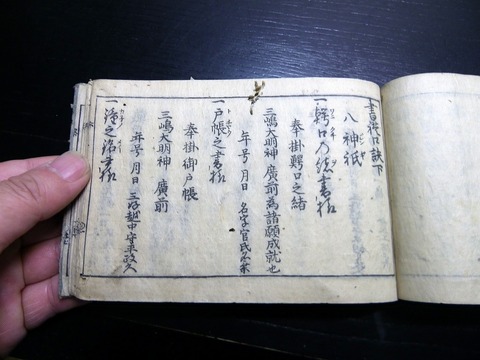 口訣下
八 神祇
一 鰐口乃緒書様
奉掛鰐口之緒
三嶋大明神 廣前為諸願成就也
年号月日 名字官氏名乗
一 戸帳之書様
奉掛御戸帳
三嶋大明神 廣前
年号月日 越中守平政久
一 鐘之銘書様